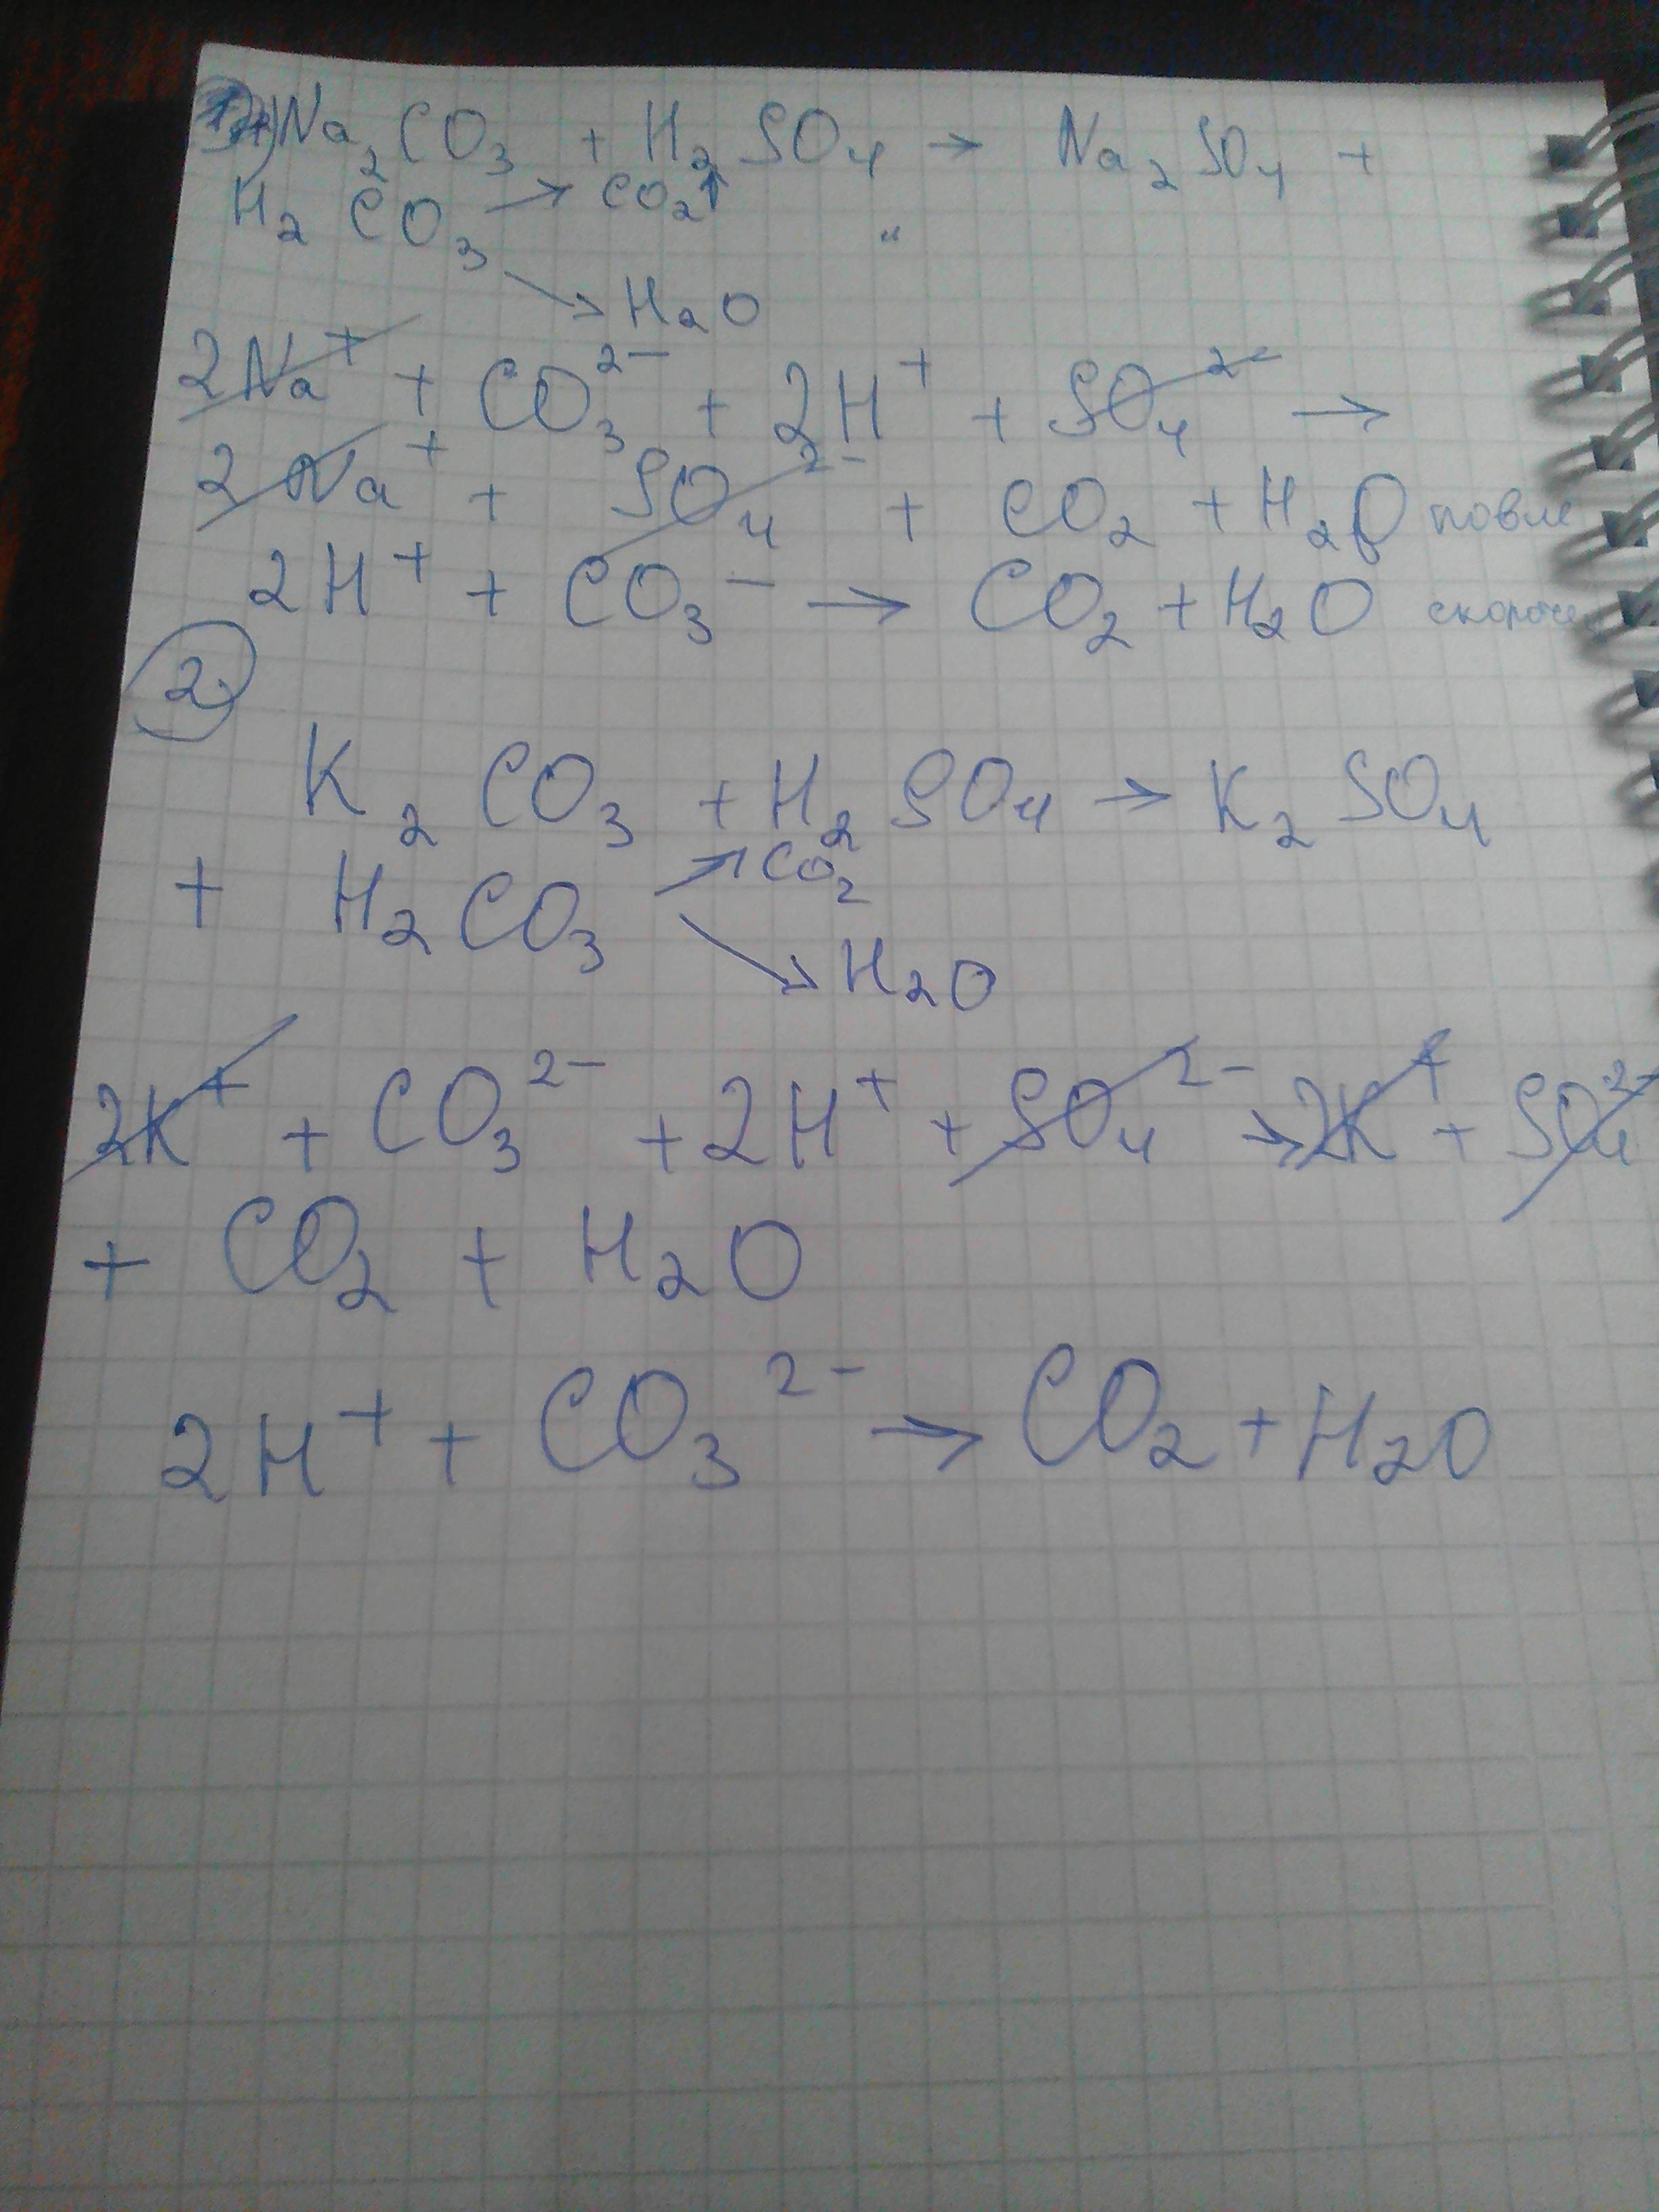 1) Na₂CO₃ + H₂SO₄ → Na₂SO₄ +
H₂CO₃ → CO₂↑
↘ H₂O
2Na⁺ + CO₃²⁻ + 2H⁺ + SO₄²⁻ →
2Na⁺ + SO₄²⁻ + CO₂ + H₂O повне
2H⁺ + CO₃⁻ → CO₂ + H₂O скороче
2.
K₂CO₃ + H₂SO₄ → K₂SO₄
+ H₂CO₃ ↗ CO₂
↘ H₂O
2K⁺ + CO₃²⁻ + 2H⁺ + SO₄²⁻ → 2K⁺ + SO₄²⁻
+ CO₂ + H₂O
2H⁺ + CO₃²⁻ → CO₂ + H₂O